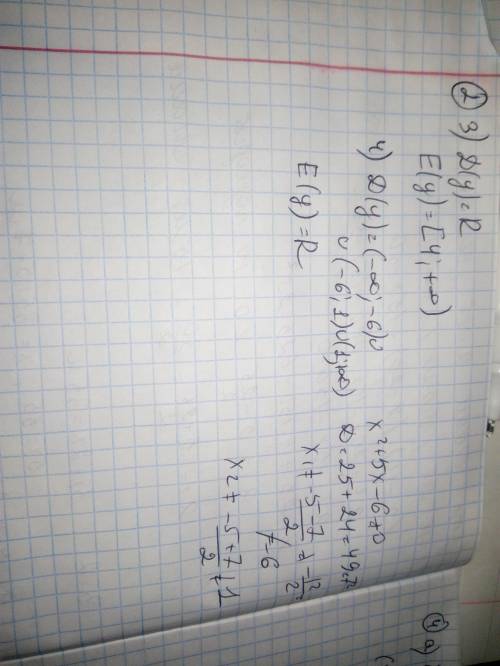 ② 3) D(y)=R
E(y)=[4; +∞)
4) D(y)=(-∞; -6)∪
∪(-6; 1)∪(1; +∞)
E(y)=R
x²+5x-6≠0
D=25+24=49=7²
x₁≠ (-5-7)/2 ≠ -12/2 ≠
≠-6
x₂≠ (-5+7)/2 ≠1
④ a)